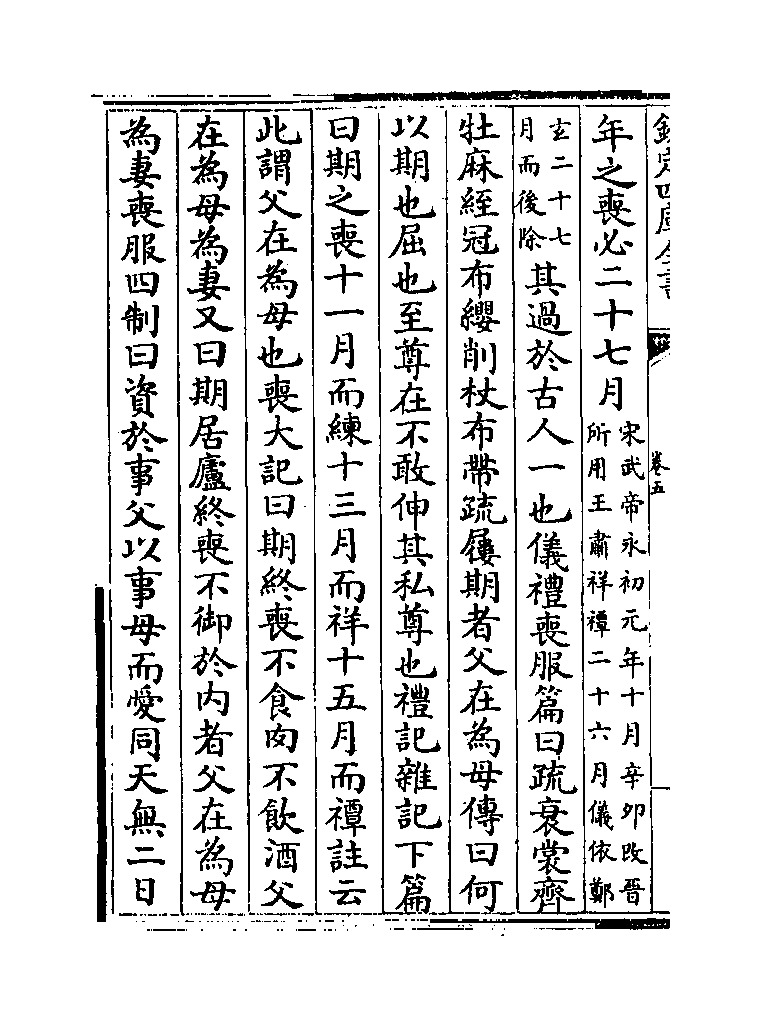 欽定四庫全書
卷五
年之喪必二十七月宋武帝永初元年十月辛卯改晉所用王肅祥禫二十六月儀依鄭
玄二十七月而後除其過於古人一也儀禮喪服篇曰疏衰裳齊
牡麻絰冠布纓削杖布帶疏屨期者父在為母傳曰何
以期也屈也至尊在不敢伸其私尊也禮記雜記下篇
曰期之喪十一月而練十三月而祥十五月而禫註云
此謂父在為母也喪大記曰期終喪不食肉不飲酒父
在為母為妻又曰期居廬終喪不御於内者父在為母
為妻喪服四制曰資於事父以事母而愛同天無二日